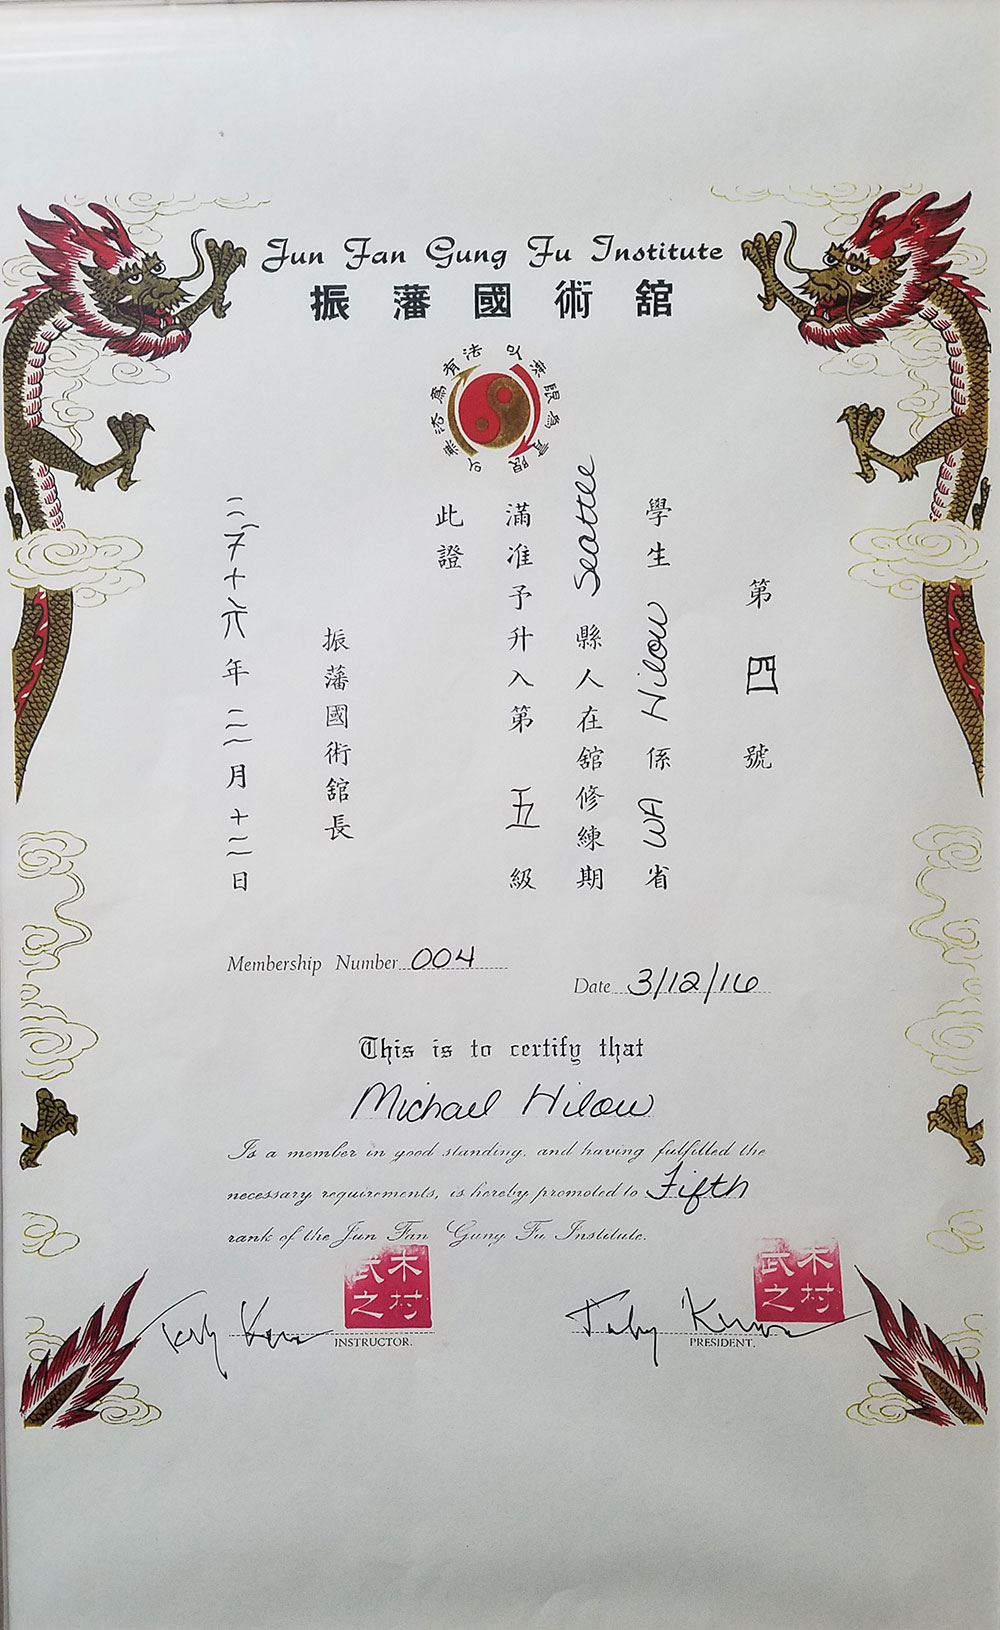 Jun Fan Gung Fu Institute
振藩國術舘
以無限為有限
以無法為有法
第四號
學生 Hilow 係 WA 省
Seattle 縣人在舘修練期
滿准予升入第五級
此證
振藩國術舘長
二千十六年三月十二日
Membership Number 004
Date 3/12/16
This is to certify that
Michael Hilow
Is a member in good standing, and having fulfilled the
necessary requirements, is hereby promoted to Fifth
rank of the Jun Fan Gung Fu Institute.
木村武之
木村武之
INSTRUCTOR.
PRESIDENT.